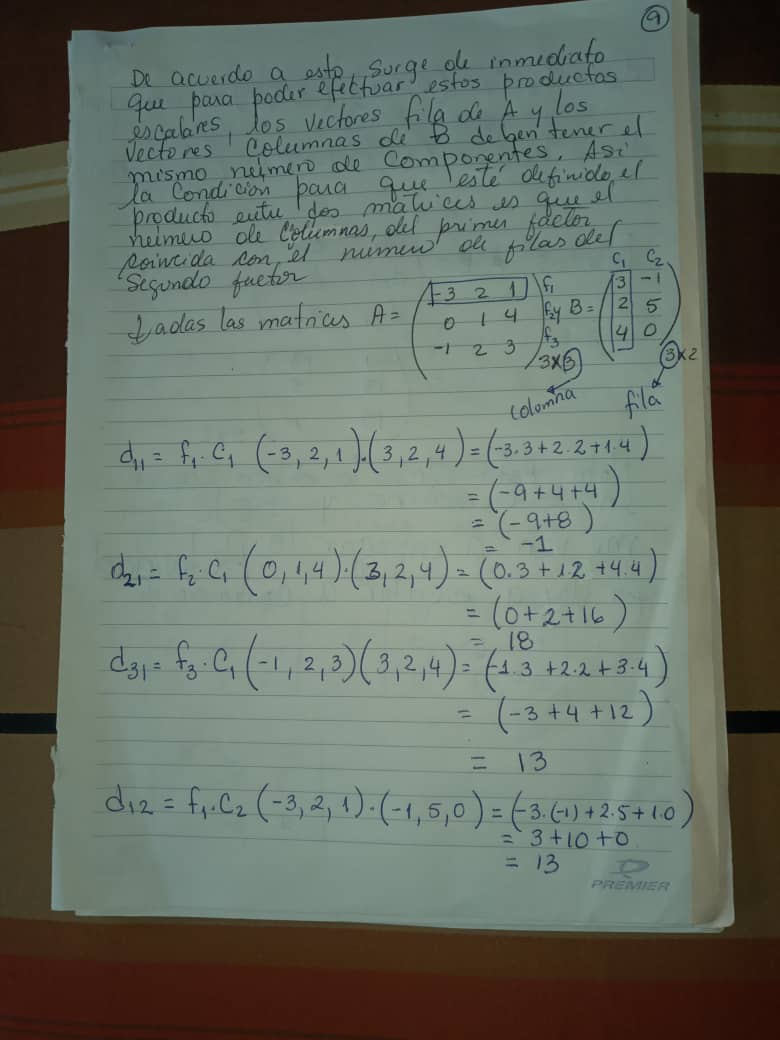 9
De acuerdo a esto, surge de inmediato
que para poder efectuar estos productos
escalares, los vectores fila de A y los
vectores columnas de B deben tener el
mismo número de componentes. Así
la condición para que esté definido, el
producto entre dos matrices es que el
número de columnas, del primer factor
coincida con el número de filas del
segundo factor
C1 C2
Dadas las matrices A = (-3 2 1) f1 B = (3 -1)
(0 1 4) f2 y (2 5)
(-1 2 3) f3 (4 0)
3x3 3x2
colomna fila
d11 = f1 . C1 (-3, 2, 1).(3, 2, 4) = (-3.3+2.2+1.4)
= (-9+4+4)
= (-9+8)
= -1
d21 = f2 . C1 (0, 1, 4).(3, 2, 4) = (0.3+1.2+4.4)
= (0+2+16)
= 18
d31 = f3 . C1 (-1, 2, 3)(3, 2, 4) = (-1.3+2.2+3.4)
= (-3+4+12)
= 13
d12 = f1 . C2 (-3, 2, 1).(-1, 5, 0) = (-3.(-1)+2.5+1.0)
= 3+10+0
= 13
PREMIER